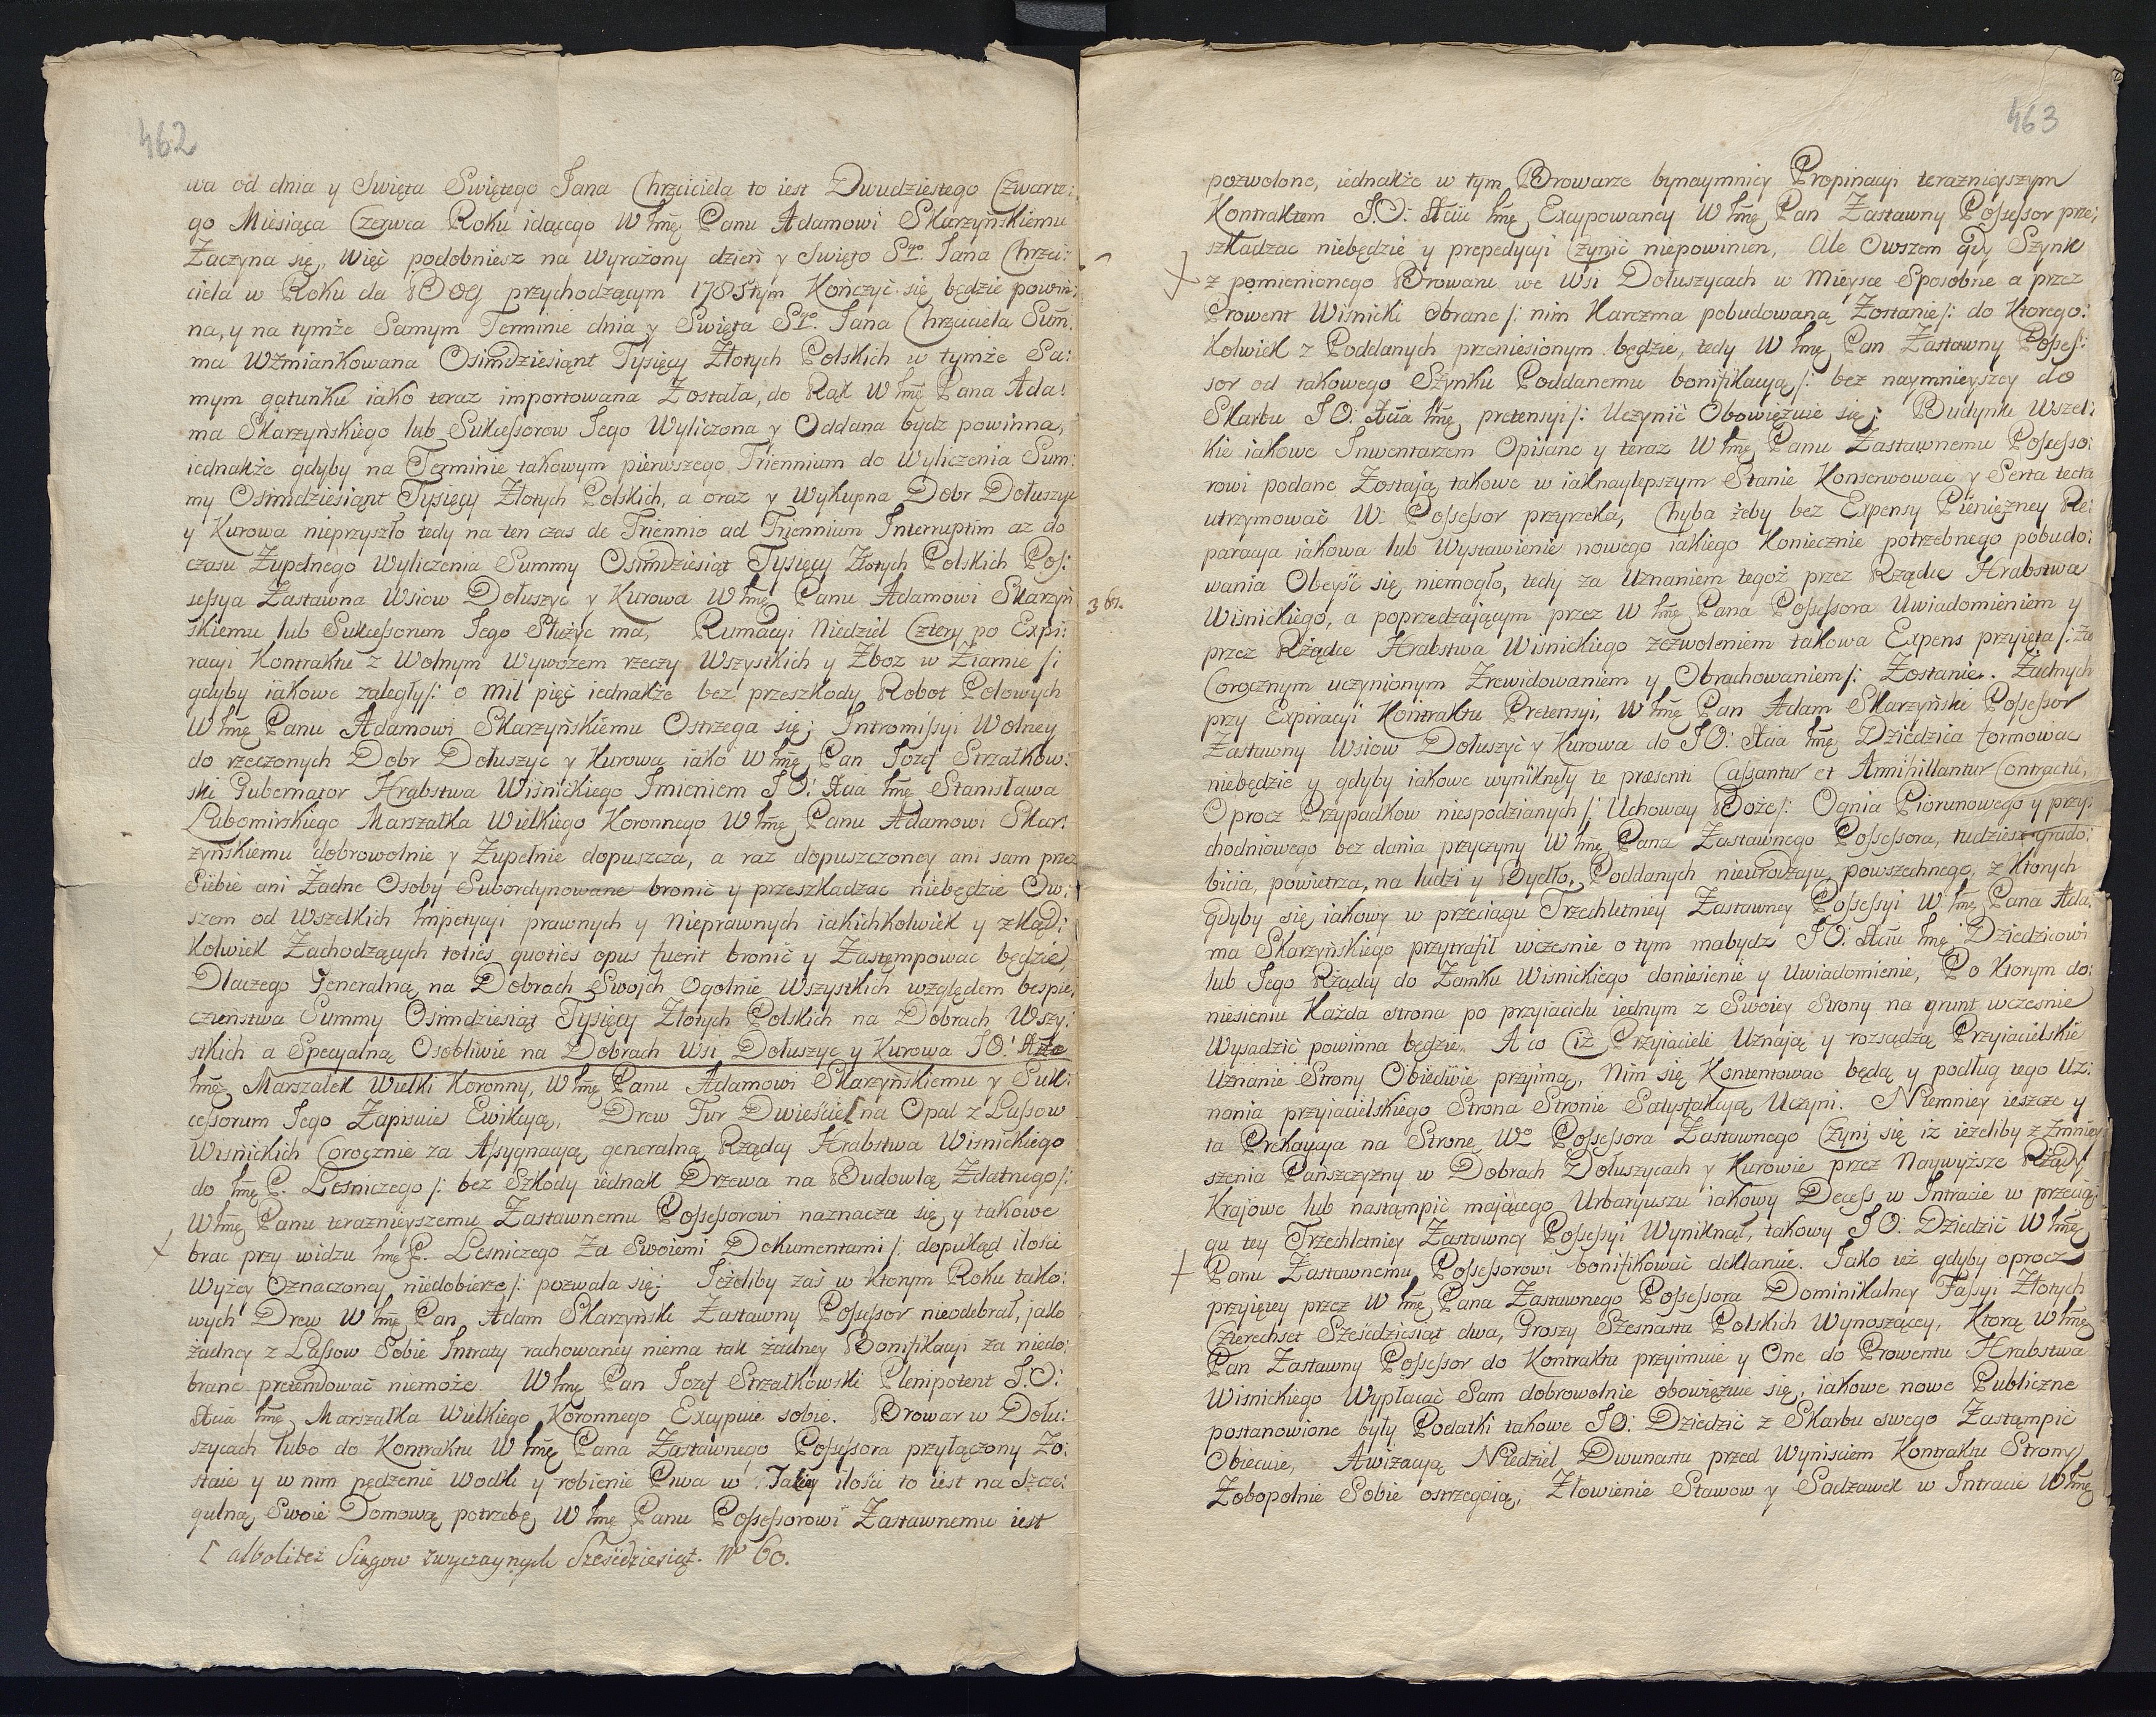 462
wa od dnia y Swięta Swiętego Jana Chrzciciela to iest Dwudziestego Czwarte:
go Miesiąca Czerwca Roku idącego W Jmę Panu Adamowi Skarzyńskiemu
Zaczyna się, więc podobniesz na wyrażony dzień y Swięto Sgo. Jana Chrzci:
ciela w Roku da Bog przychodzącym 1785tym Kończyć się będzie powin:
na, y na tymże Samym Terminie dnia y Swięta Sgo. Jana Chrzciciela Sum̃:
ma Wzmiankowana Osimdziesiąnt Tysięcy Złotych Polskich w tymże Sa:
mym gatunku iako teraz importowana Została, do Rąk W Jmę Pana Ada:
ma Skarzyńskiego lub Sukcessorow Jego Wyliczona y Oddana bydz powinna,
iednakże gdyby na Terminie takowym pierwszego Triennium do Wyliczenia Sum:
my Osimdziesiąnt Tysięcy Złotych Polskich, a oraz y Wykupna Dobr Dołuszyc
y Kurowa nieprzyszło tedy na ten czas de Triennio ad Triennium Interruptim az do
czasu Zupełnego Wyliczenia Summy Osimdziesiąt Tysięcy Złotych Polskich Pos:
sessya Zastawna Wsiow Dołuszyc y Kurowa W Jmę Panu Adamowi Skarzyń
skiemu lub Sukcessorum Jego Służyc ma, Rumacyi Niedziel Cztery po Expi:
racyi Kontraktu z Wolnym Wywozem rzeczy Wszystkich y Zboz w Ziarnie /:
gdyby iakowe zaległy/: o mil pięć iednakże bez przeszkody Robot Polowych
W Jmę Panu Adamowi Skarzyńskiemu Ostrzega się; Intromissyi Wolney
do rzeczonych Dobr Dołuszyc y Kurowa iako W Jmę Pan Jozef Strzałkow:
ski Gubernator Hrabstwa Wiśnickiego Jmieniem JO: Xcia Jmę Stanisława
Lubomirskiego Marszałka Wielkiego Koronnego W Jmę Panu Adamowi Skar:
zyńskiemu dobrowolnie y Zupełnie dopuszcza, a raz dopuszczoney ani sam przez
Siebie ani Żadne Osoby Subordynowane bronić y przeszkadzac niebędzie Ow:
szem od Wszelkich Jmpetycyi prawnych y Nieprawnych iakichkolwiek y zkąd:
kolwiek Zachodzących toties quoties opus fuerit bronić y Zastempowac będzie,
Dlaczego Generalną na Dobrach Swoich Ogolnie Wszystkich względem bespie:
czenstwa Summy Osimdziesiąt Tysięcy Złotych Polskich na Dobrach Wszy:
stkich a Specyalną Osobliwie na Dobrach Wsi Dołuszyc y Kurowa JO: Xże
Jmę Marszałek Wielki Koronny, W Jmę Panu Adamowi Skarzyńskiemu y Suk:
cessorum Jego Zapisuie Ewikcyą, Drew Fur Dwieście [ na Opał z Lassow
Wiśnickich Corocznie za Assygnacyą generalną Rządcy Hrabstwa Wisnickiego
do Jmę P. Lesniczego /: bez Szkody iednak Drzewa na Budowlą Zdatnego/:
W Jmę Panu teraznieyszemu Zastawnemu Possessorowi naznacza się y takowe
brac przy widzu Jmę P. Lesniczego Za Swoiemi Dokumentami /: dopukąd ilości
Wyżey Oznaczoney niedobierze /: pozwala się; Jeżeliby zaś w ktorym Roku tako:
wych Drew W Jmę Pan Adam Skarzyński Zastawny Possessor nieodebrał, jako
żadney z Lassow Sobie Intraty rachowaney niema tak żadney Bonifikacyi za niedo:
brane pretendować niemoże. W Jmę Pan Jozef Strzałkowski Plenipotent J.O:
Xcia Jmę Marszałka Wielkiego Koronnego Excypuie sobie. Browar w Dołu:
szycach lubo do Kontraktu W Jmę Pana Zastawnego Possessora przyłączony Zo:
staie y w nim pędzenie Wodki y robienie Piwa w Takiey ilości to iest na Szcze:
gulną Swoie Domową potrzebę W Jmę Panu Possessorowi Zastawnemu iest
[ albolitez Sągow zwyczaynych Sześćdziesiąt. No 60.
463
pozwolone, iednakże w tym Browarze bynaymniey Propinacyi teraznieyszym
Kontraktem J.O: Xciu Jmę Excypowaney W Jmę Pan Zastawny Possessor prze:
szkadzac niebędzie y prepedycyi Czynić niepowinien, Ale Owszem gdy Szynk
z pomienionego Browaru we Wsi Dołuszycach w Mieysce Sposobne a przez
Prowent Wiśnicki Obrane /: nim Karczma pobudowaną Zostanie /: do Ktorego:
kolwiek z Poddanych przeniesionym będzie, tedy W Jmę Pan Zastawny Posses:
sor od takowego Szynku Poddanemu bonifikacyą /: bez naymnieyszey do
Skarbu JO: Xcia Jmę pretensyi /: Uczynić Obowięzuie się; Budynki Wszel:
kie iakowe Inwentarzem Opisane y teraz W Jmę Panu Zastawnemu Possesso:
rowi podane Zostaią takowe w iaknaylepszym Stanie Konserwowac y Serta tecta
utrzymować W. Possessor przyrzeka, Chyba żeby bez Expensy Pieniężney Re:
paracya iakowa lub Wystawienie nowego iakiego Koniecznie potrzebnego pobudo:
wania Obeyść się niemogło, tedy za Uznaniem tegoż przez Rządcę Hrabstwa
36r.
Wisnickiego, a poprzedzaiącym przez W Jmę Pana Possessora Uwiadomieniem y
przez Rządcę Hrabstwa Wisnickiego zezwoleniem takowa Expens przyięta /: Za
Corocznym uczynionym Zrewidowaniem y Obrachowaniem /: Zostanie. Żadnych
przy Expiracyi Kontraktu Pretensyi, W Jmę Pan Adam Skarzyński Possessor
Zastawny Wsiow Dołuszyć y Kurowa do JO: Xcia Jmę Dziedzica formowac
niebędzie y gdyby iakowe wyniknęły te præsenti Cassantur et Annihillantur Contractu,
Oprocz Przypadkow niespodzianych /: Uchoway Boże /: Ognia Piorunowego y przy:
chodniowego bez dania przyczyny W Jmę Pana Zastawnego Possessora, tudziesz grado:
bicia, powietrza, na ludzi y Bydło, Poddanych nieurodzaju powszechnego, z Ktorych
gdyby się iakowy w przeciągu Trzechletniey Zastawney Possessyi W Jmę Pana Ada:
ma Skarzyńskiego przytrafił wczesnie o tym mabydz JO: Xciu Jmę Dziedzicowi
lub Jego Rządcy do Zamku Wisnickiego doniesienie y Uwiadomienie, Po Ktorym do:
niesieniu Każda strona po przyiacielu iednym z Swoiey Strony na grunt wczesnie
Wysadzić powinna będzie. A co Ciż Przyiaciele Uznaią y rozsądzą Przyiacielskie
Uznanie Strony Obiedwie przyimą, Nim się Kontentowac będą y podług tego Uz:
nania przyiacielskiego Strona Stronie Satysfakcyą Uczyni. Niemniey ieszcze y
ta Prekaucya na Stronę Wo Possessora Zastawnego Czyni się iz ieżeliby z Zmniey:
szenia Pańszczyzny w Dobrach Dołuszycach y Kurowie przez Naywyższe Rządy
Krajowe lub nastąmpić maiącego Urbaryuszu iakowy Decess w Intracie w przecią:
gu tey Trzechletniey Zastawney Possessyi Wyniknął, takowy JO: Dziedzić W Jmę
Panu Zastawnemu Possessorowi bonifikować deklaruie. Jako też gdyby oprocz
przyiętey przez W Jmę Pana Zastawnego Possessora Dominikalney Fassyi Złotych
Czterechset Sześćdziesiąt dwa, Groszy Szesnastu Polskich Wynoszącey, Ktorą W Jmę
Pan Zastawny Possessor do Kontraktu przyimuie y One do Prowentu Hrabstwa
Wisnickiego Wypłacać Sam dobrowolnie obowięzuie się, iakowe nowe Publiczne
postanowione były Podatki takowe JO: Dziedzić z Skarbu swego Zastąmpić
Obiecuie, Awizacyą Niedziel Dwunastu przed Wyniściem Kontraktu Strony
Zobopolnie Sobie ostrzegaią, Złowienie Stawow y Sadzawek w Intracie W Jmę